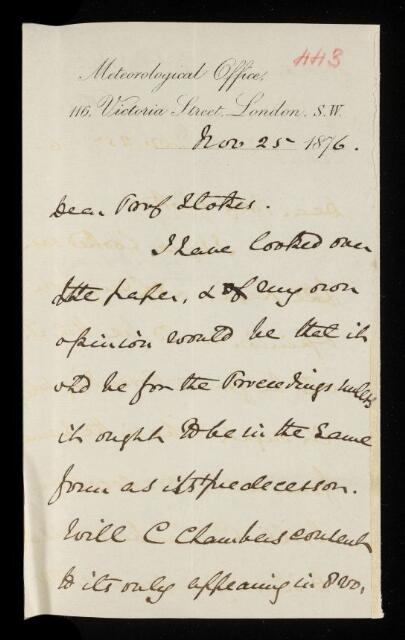 443
Meteorological Office,
116, Victoria Street, London, S.W.
Nov 25 1876.
Dear Prof Stokes.
I have looked over
the paper, & my own
opinion would be that it
shd be for the Proceedings unless
it ought to be in the same
form as its predecessor.
Will C Chambers consent
to its only appearing in 8vo,